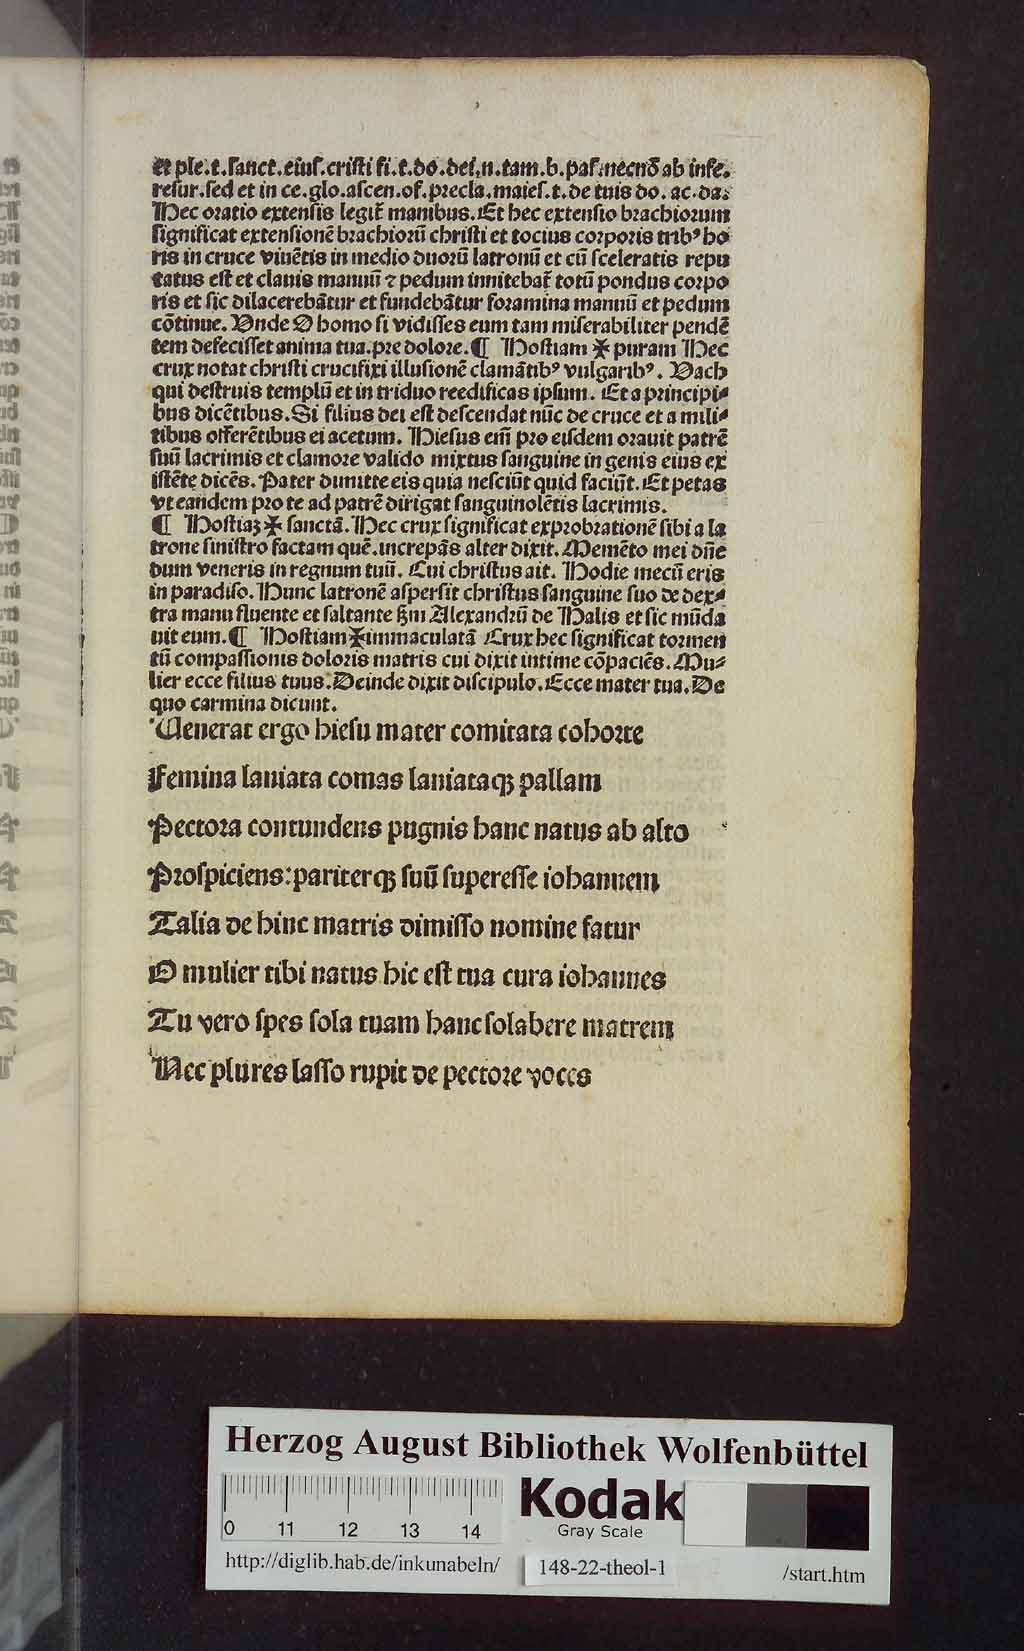 et ple.t.sanct.eius.cristi fi.t.do.dei.n.tam.b.pas.necnō ab infe.
resur.sed et in ce.glo.ascen.of.precla.maies.t.de tuis do. ac.da.
Hec oratio extensis legit̄ manibus. Et hec extensio brachiorum
significat extensionē brachiorū christi et tocius corporis tribꝰ ho
ris in cruce viuētis in medio duorū latronū et cū sceleratis repu
tatus est et clauis manuū ⁊ pedum innitebat̄ totū pondus corpo
ris et sic dilacerebātur et fundebātur foramina manuū et pedum
cōtinue. Vnde O homo si vidisses eum tam miserabiliter pendē
tem defecisset anima tua.pre dolore.¶ Hostiam ✠ puram Hec
crux notat christi crucifixi illusionē clamātibꝰ vulgaribꝰ. Vach
qui destruis templū et in triduo reedificas ipsum. Et a principi⸗
bus dicētibus. Si filius dei est descendat nūc de cruce et a mili⸗
tibus offerētibus ei acetum. Hiesus em̄ pro eisdem orauit patrē
suū lacrimis et clamore valido mixtus sanguine in genis eius ex
istēte dicēs. Pater dimitte eis quia nesciūt quid faciūt. Et petas
vt eandem pro te ad patrē dirigat sanguinolētis lacrimis.
¶ Hostiaꝫ ✠ sanctā. Hec crux significat exprobrationē sibi a la
trone sinistro factam quē.increpās alter dixit. Memēto mei dn̄e
dum veneris in regnum tuū. Cui christus ait. Hodie mecū eris
in paradiso. Hunc latronē aspersit christus sanguine suo de dex⸗
tra manu fluente et saltante ẜm Alexandrū de Halis et sic mūda
uit eum.¶ Hostiam ✠ immaculatā Crux hec significat tormen
tū compassionis doloris matris cui dixit intime cōpaciēs. Mu⸗
lier ecce filius tuus. Deinde dixit discipulo. Ecce mater tua. De
quo carmina dicunt.
Venerat ergo hiesu mater comitata cohorte
Femina laniata comas laniataqꝫ pallam
Pectora contundens pugnis hanc natus ab alto
Prospiciens: pariterqꝫ suū superesse iohannem
Talia de hinc matris dimisso nomine fatur
O mulier tibi natus hic est tua cura iohannes
Tu vero spes sola tuam hanc solabere matrem
Nec plures lasso rupit de pectore voces
Herzog August Bibliothek Wolfenbüttel
0 11 12 13 14
Kodak
Gray Scale
http://diglib.hab.de/inkunabeln/ 148-22-theol-1 /start.htm